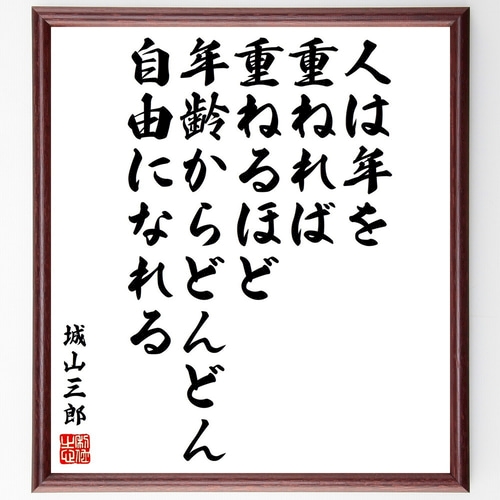 人は年を
重ねれば
重ねるほど
年齢からどんどん
自由になれる
城山三郎